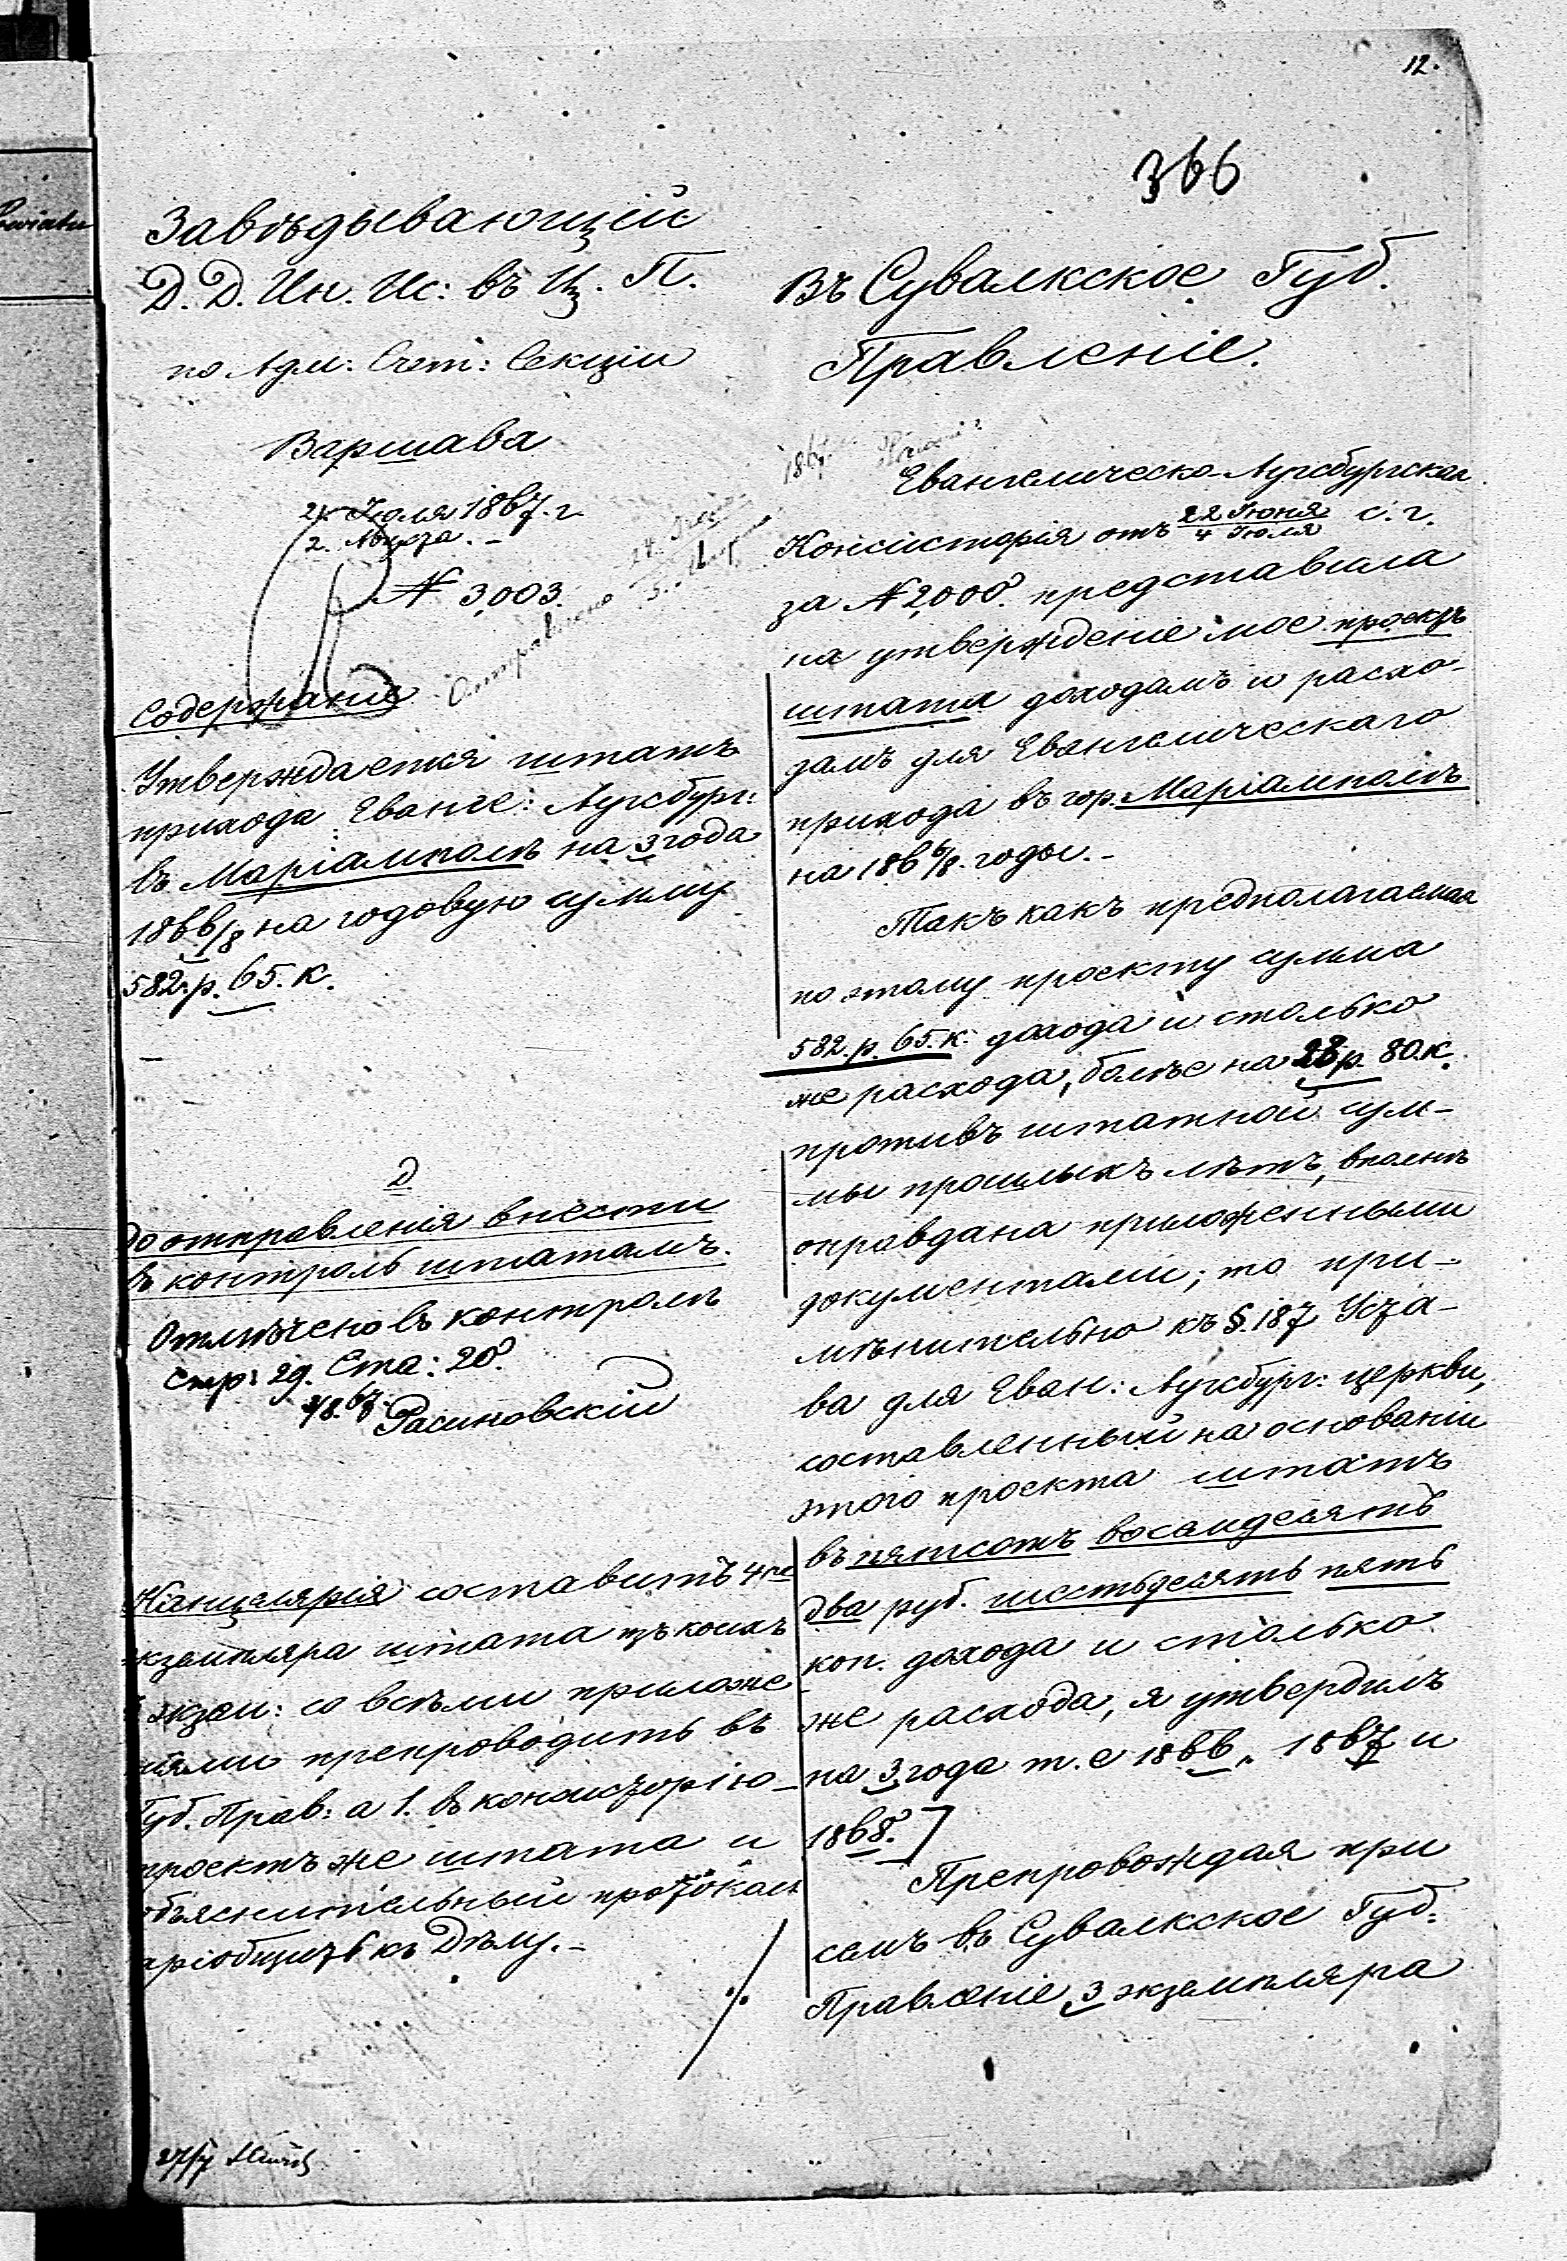 12.
366
Завѣдывающій
Д. Д. Ин. Ис: въ Ц. П.
по Адм: Счет: Секціи
Варшава
21. Іюля 1867. г.
2. Августа. –
№ 3,003.
Отправлено
Содержаніе
Утверждается штатъ
прихода Еванге: Аугсбург:
въ Маріамполѣ на 3 года
1866/8 на годовую сумму
582. р. 65. к.
Д
До отправленія внести
въ контроль штатамъ.
Отмѣчено въ контролѣ
стр: 29. Ста: 20.
Канцелярія составитъ 4ре
экземпляра штата изъ коихъ
3 экзем: со всѣми приложе
ніями препроводитъ въ
Губ. Прав: а 1. въ консисторію –
проектъ же штата и
объяснительный протоколъ
пріобщитъ къ Дѣлу. –
27/7
Въ Сувалкское Губ.
Правленіе.
Евангелическо-Аугсбургская
Консисторія отъ 22 Іюня/4 Іюля с. г.
за № 2,000. представила
на утвержденіе мое проектъ
штата доходамъ и расхо-
дамъ для Евангелическаго
прихода въ гор. Маріамполѣ
на 1866/8. годы. –
Такъ какъ предполагаемая
по этому проекту сумма
582. р. 65. к. дохода и столько
же расхода, болѣе на 28 р. 80. к.
противъ штатной сум-
мы прошлыхъ лѣтъ, вполнѣ
оправдана приложенными
документами; то при-
мѣнительно къ §. 187 Уста-
ва для Еван: Аугсбург: церкви,
составленный на основаніи
этого проекта штатъ
въ пятьсотъ восемдесятъ
два руб. шестьдесятъ пять
коп. дохода и столько
же расхода, я утвердилъ
на 3 года т. е 1866, 1867 и
1868.]
Препровождая при
семъ въ Сувалкское Губ:
Правленіе 3 экземпляра